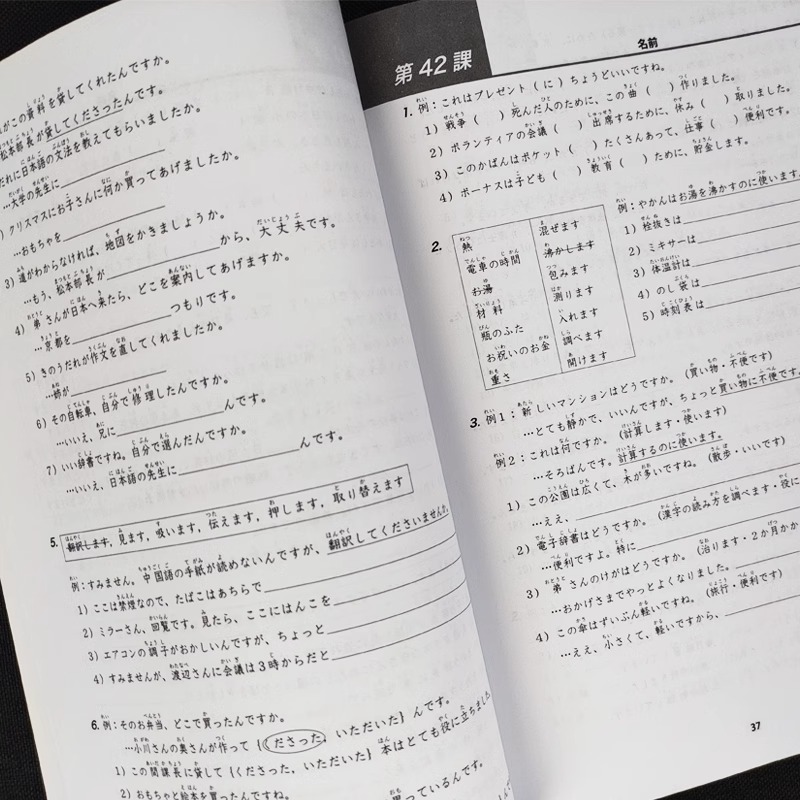 がこの資料を貸してくれたんですか。
松本部長が貸してくださったんです。
だれに日本語の文法を教えてもらいましたか。
…大学の先生に
クリスマスにお子さんに何か買ってあげましたか。
…おもちゃを
3) 道がわからなければ、地図をかきましょうか。
…もう、松本部長が から、大丈夫です。
4) 弟さんが日本へ来たら、どこを案内してあげますか。
…京都を つもりです。
5) きのうだれが作文を直してくれましたか。
…姉が
6) その自転車、自分で修理したんですか。
…いいえ、兄に んです。
7) いい辞書ですね。自分で選んだんですか。
…いいえ、日本語の先生に んです。
5. 翻訳します, 見ます, 吸います, 伝えます, 押します, 取り替えます
例：すみません。中国語の手紙が読めないんですが、翻訳してくださいませんか。
1) ここは禁煙なので、たばこはあちらで
2) ミラーさん、回覧です。見たら、ここにはんこを
3) エアコンの調子がおかしいんですが、ちょっと
4) すみませんが、渡辺さんに会議は3時からだと
6. 例：そのお弁当、どこで買ったんですか。
…小川さんの奥さんが作って {くださった, いただいた} んです。
1) この間課長に貸して {くださった, いただいた} 本はとても役に立ちました
2) おもちゃと絵本を買ったんですね。
っているんです。
第42課
名前
1. 例：これはプレゼント ( に ) ちょうどいいですね。
1) 戦争 ( ) 死んだ人のために、この曲 ( ) 作りました。
2) ボランティアの会議 ( ) 出席するために、休み ( ) 取りました。
3) このかばんはポケット ( ) たくさんあって、仕事 ( ) 便利です。
4) ボーナスは子ども ( ) 教育 ( ) ために、貯金します。
2.
熱 混ぜます
電車の時間 沸かします
お湯 包みます
材料 測ります
瓶のふた 入れます
お祝いのお金 調べます
重さ 開けます
例：やかんはお湯を沸かすのに使います
1) 栓抜きは
2) ミキサーは
3) 体温計は
4) のし袋は
5) 時刻表は
3. 例1：新しいマンションはどうですか。(買い物・不便です)
…とても静かで、いいんですが、ちょっと買い物に不便です。
例2：これは何ですか。(計算します・使います)
…そろばんです。計算するのに使います。
1) この公園は広くて、木が多いですね。(散歩・いいです)
…ええ、
2) 電子辞書はどうですか。(漢字の読み方を調べます・役に
…便利ですよ。特に
3) 弟さんのけがはどうですか。(治ります・2か月かか
…おかげさまでやっとよくなりました。
4) この傘はずいぶん軽いですね。(旅行・便利です)
…ええ、小さくて、軽いですから、
37